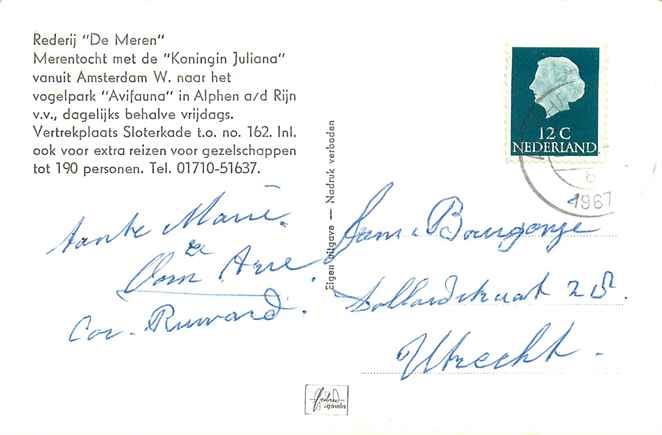 Rederij "De Meren"
Merentocht met de "Koningin Juliana"
vanuit Amsterdam W. naar het
vogelpark "Avifauna" in Alphen a/d Rijn
v.v., dagelijks behalve vrijdags.
Vertrekplaats Sloterkade t.o. no. 162. Inl.
ook voor extra reizen voor gezelschappen
tot 190 personen. Tel. 01710-51637.
Tante Marie.
Oom Arie.
Cor. Ruward.
Eigen uitgave — Nadruk verboden
12 C
NEDERLAND
6
1967
Fam. Bourgonje
Dollardstraat
Utrecht.